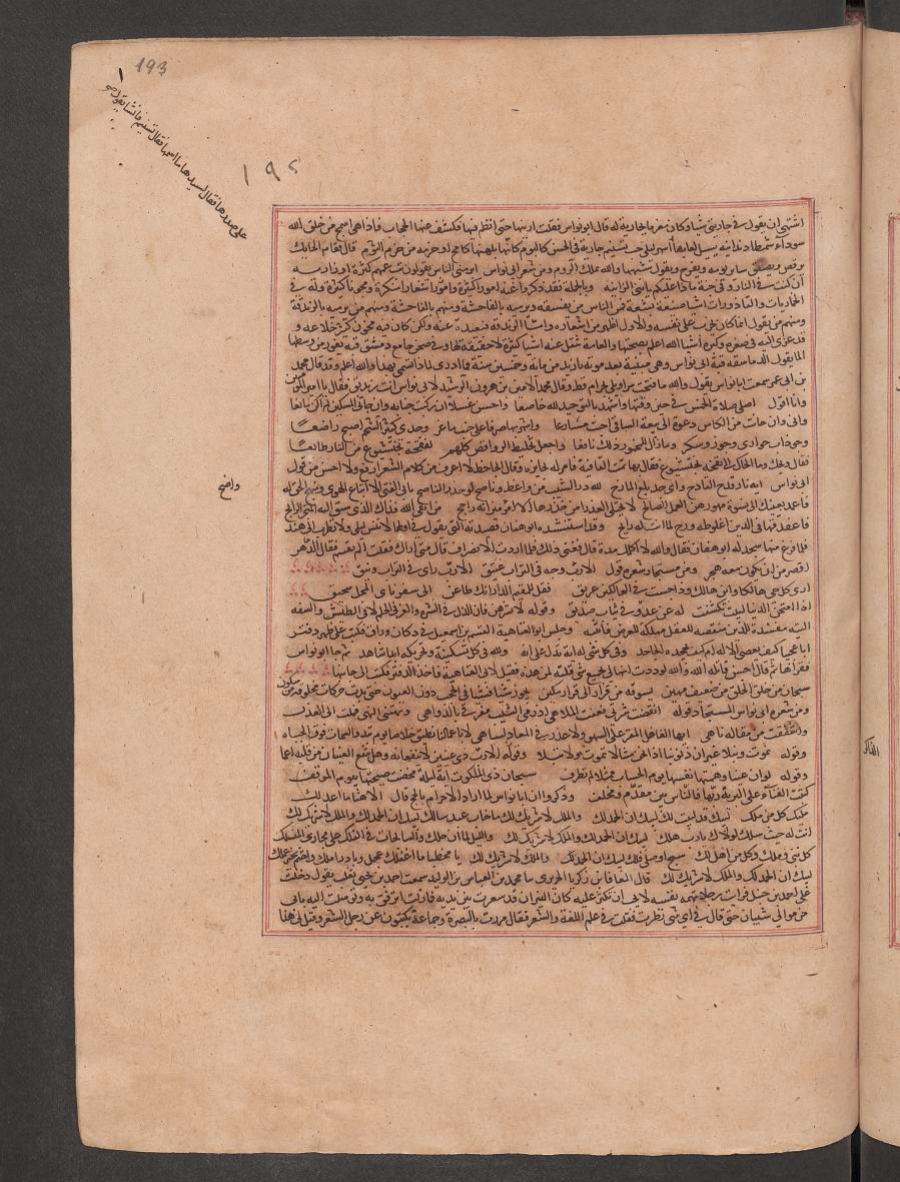 193
١
١٩٢
على صدرها فقال لسيدها ما اسمها فقال تسنيم فانشا يقول
اشتهي ان يقول في جاريتي شيا وكان مغرما بالجارية له قال ابو نواس فقلت ارنيها حتى انظر فيها فكشف عنها الحجاب فاذا هي اسمج من خلق الله
سوداء شمطاء
جارية في الحسن كالبوم كانها
او حزمة من حزم الثوم قال فقام الحايك
يرقص ويصفق ساير يومه ويفرح ويقول شبهها والله بملك الروم ومن شعر ابي نواس
وبالجملة فقد ذكروا عنه امورا كثيرة واشعارا منكرة وله في
الخمريات والقاذورات اشيا
فمن الناس من يفسقه ويرميه بالفاحشة ومنهم من يرميه بالزندقة
ومنهم من يقول انما كان يخرب على نفسه والاول اظهر من اشعاره واما الزندقة فبعيدة عنه ولكن كان فيه مجون كثير وخلاعة و
قد عزي اليه في صغره وكبره اشيا الله اعلم بصحتها والعامة تنقل عنه اشيا كثيرة لا حقيقة لها وفي صحن جامع دمشق قبة يفور من وسطها
الما يقول الدماشقة قبة ابي نواس وهي مبنية بعد موته بازيد من ماية وخمسين سنة فما ادري لماذا تسمى بهذا والله اعلم وقد قال محمد
بن ابي عمر سمعت ابا نواس يقول والله ما فتحت سراويلي لحرام قط وقال محمد الامين بن هرون الرشيد لابي نواس انت زنديق فقال يا امير المؤمنين
وانا اقول اصلي صلاة الخمس في حين وقتها واشهد بالتوحيد لله خاضعا واحسن غسلا ان ركبت جنابة وان جاني المسكين لم اك مانعا
واني وان حانت من الكاس دعوة الى بيعة الساقي اجبت مسارعا واشربها صرفا على جنب ماعز وجدي كثير الشحم اصبح راضعا
وسكر وما زال للمخمور ذلك نافعا واجعل تخليط الروافض كلهم لفقحة بختيشوع في النار طابعا
فقال ويحك وما الجاك الى فقحة بختيشوع فقال بها تمت القافية فامر له بجايزة وقال الجاحظ لا اعرف من كلام الشعرا ارفع ولا احسن من قول
ابي نواس اية نار قدح القادح واي جد بلغ المازح لله در الشيب من واعظ وناصح لو حذر الناصح يابى الفتى الا اتباع الهوى ومنهج الحق له
واضح
فاعمد بعينك الى نسوة مهورهن العمل الصالح لا يجتلي العذراء من خدرها الا امرؤ ميزانه راجح من اتقى الله فذاك الذي سيق اليه المتجر الرابح
فاغد فما في الدين اغلوطة ورح لما انت له رايح وقد استنشده ابو هفان قصيدته التي يقول في اولها لا تنس ليلى ولا تنظر الى هند
فلما فرغ منها سجد له ابو هفان فقال والله لا اكلمك مدة قال فغمني ذلك فلما اردت الانصراف قال متى اراك فقلت الم تقسم فقال الدهر
اقصر من ان يكون معه هجر ومن مستجاد شعره قوله الا رب وجه في التراب عتيق الا رب راي في التراب وثيق
ارى كل حي هالكا وابن هالك وذا حسب في الهالكين عريق فقل لمقيم الدار انك ظاعن الى سفر ناي المحل سحيق
اذا امتحن الدنيا لبيب تكشفت له عن عدو في ثياب صديق وقوله لا تشرهن فان الذل في الشره والعز في الحلم لا في الطيش والسفه
وجلس ابو العتاهية القسم بن اسمعيل في دكان وراق فكتب على ظهر دفتر
ايا عجبا كيف يعصى الاله ام كيف يجحده الجاحد وفي كل شي له اية تدل على انه ولله في كل تسكينة وتحريكة ابدا شاهد ثم جا ابو نواس
فقراها ثم قال احسن قاتله الله والله لوددت انها لي بجميع شي قلته لمن هذه فقيل لابي العتاهية فاخذ الدفتر فكتب الى جانبها
سبحان من خلق الخلق من ضعيف مهين يسوقه من قرار الى قرار مكين يحوز شيا فشيا في الحجب دون العيون حتى بدت حركات مخلوقة من سكون
ومن شعره ابي نواس المستجاد قوله انقضت شرتي فعفت الملاهي اذ رمى الشيب مفرقي بالدواهي ونهتني النهى فملت الى العدل
واشفقت من مقالة ناهي ايها الغافل المقر على السهو ولا عذر في المعاد لساهي لا باعمالنا نطيق خلاصا يوم تبدو السمات فوق الجباه
وقوله نموت ونبلى غير ان ذنوبنا اذا نحن متنا لا تموت ولا تبلى وقوله الا رب ذي عينين لا تنفعانه وهل تنفع العينان من قلبه اعمى
وقوله لو ان عينا وهمتها نفسها يوم الحساب ممثلا لم تطرف سبحان ذي الملكوت اية ليلة مخضت صبيحتها بيوم الموقف
كتب الفناء على البرية ربها فالناس بين مقدم ومخلف وذكروا ان ابا نواس لما اراد الاحرام بالحج قال الاهنا ما اعدلك
مليك كل من ملك لبيك قد لبيت لك لبيك ان الحمد لك والملك لا شريك لك ما خاب عبد سالك لبيك ان الحمد لك والملك لا شريك لك
انت له حيث سلك لولاك يا رب هلك لبيك ان الحمد لك والملك لا شريك لك والليل لما ان حلك والسابحات في الفلك على مجاري المنسلك
كل نبي وملك وكل من اهل لك سبح او صلى فلك لبيك ان الحمد لك والملك لا شريك لك يا مخطيا ما اغفلك عجل وبادر املك واختم بخير عملك
لبيك ان الحمد لك والملك لا شريك لك قال المعافا بن زكريا الحريري ما محمد بن العباس بن الوليد سمعت احمد بن يحيى ثعلب يقول دخلت
على احمد بن حنبل فرايت رجلا تهمه نفسه لا يحب ان يكثر عليه كان النيران قد سعرت بين يديه فما زلت اترفق به وتوسلت اليه باني
من موالي شيبان حتى قال في اي شي نظرت فقلت في علم اللغة والشعر فقال مررت بالبصرة وجماعة يكتبون عن رجل الشعر وقيل لي هذا